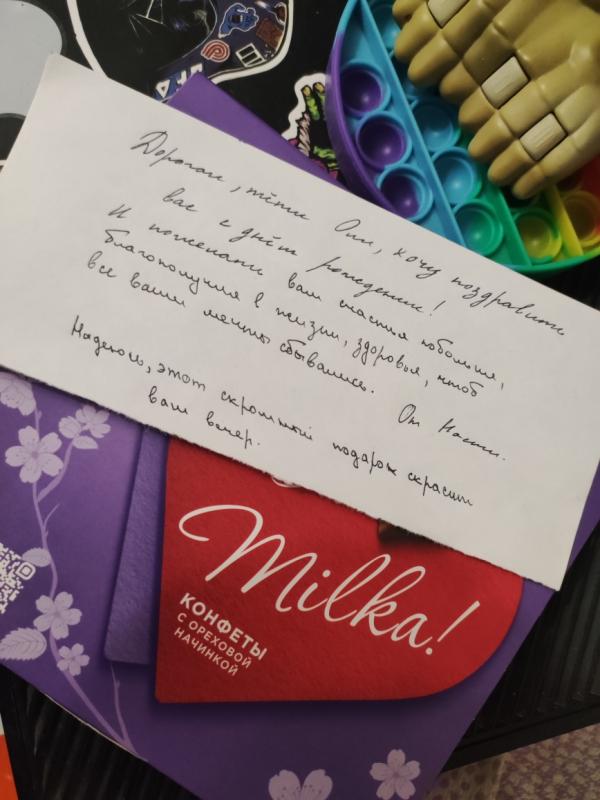 Дорогая, тётя Оля, хочу поздравить
вас с днём рождения!
И пожелать вам счастья побольше,
благополучия в жизни, здоровья, чтоб
все ваши мечты сбывались. От Насти.
Надеюсь, этот скромный подарок скрасит
ваш вечер.
Milka!
КОНФЕТЫ
С ОРЕХОВОЙ
НАЧИНКОЙ